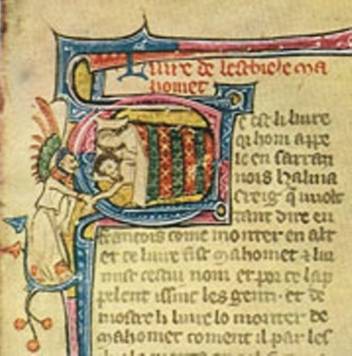 Livre de leschiele ma
homet
Ce est li livre
qe hom appe
le en sarrazi
nois halma
ereig q' vault
tant dire en
francois come monter en alt
et ce livre fist mahomet & li
mist cestui nom et por ce lap
pelent issint les genz et de
mostre li livre lo monter de
mahomet coment il par les